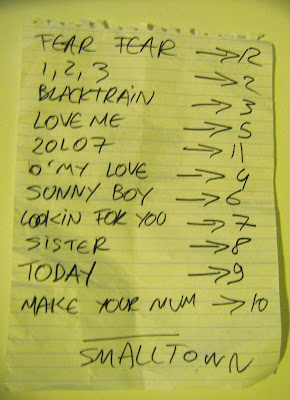 FEAR FEAR → 12
1, 2, 3 → 2
BLACKTRAIN → 3
LOVE ME → 5
20L07 → 11
O'MY LOVE → 4
SUNNY BOY → 6
LOOKIN FOR YOU → 7
SISTER → 8
TODAY → 9
MAKE YOUR NUM → 10
SMALLTOWN